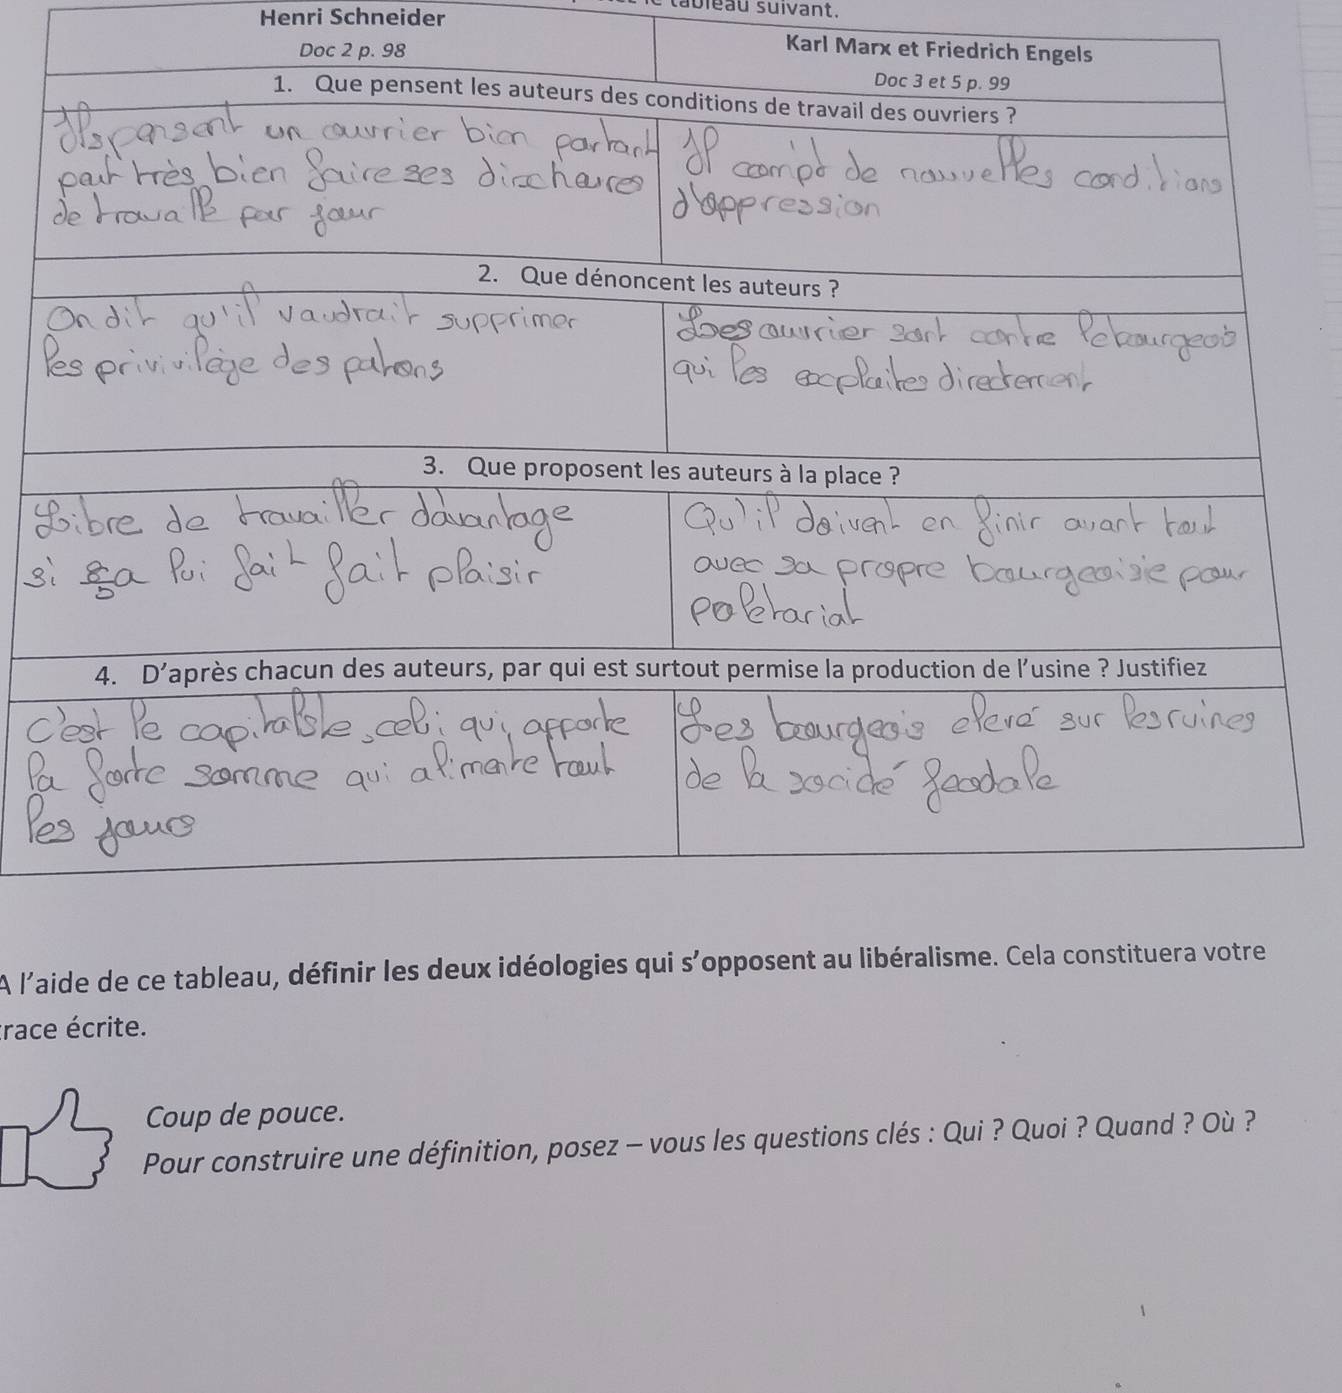 tableau suivant.
Henri Schneider
Doc 2 p. 98
Karl Marx et Friedrich Engels
Doc 3 et 5 p. 99
1. Que pensent les auteurs des conditions de travail des ouvriers ?
Ils pensent un ouvrier bien portant
paut très bien faire ses dixcheures
de travaile par jour
Il compt de nouvelles conditions
d'oppression
2. Que dénoncent les auteurs ?
On dit qu'il vaudrait supprimer
les privivilège des patrons
Les ouvrier sont contre le bourgeois
qui les excplaites directement
3. Que proposent les auteurs à la place ?
Libre de travailler davantage
si ça lui fait fait plaisir
Qu'il doivent en finir avant tout
avec sa propre bourgeoisie pour
poletariat
4. D'après chacun des auteurs, par qui est surtout permise la production de l'usine ? Justifiez
C'est le capitaliste, celi qui apporte
la forte somme qui alimente tout
les jours
Les bourgeois elevé sur les ruines
de la socidé feodale
A l'aide de ce tableau, définir les deux idéologies qui s'opposent au libéralisme. Cela constituera votre
trace écrite.
Coup de pouce.
Pour construire une définition, posez – vous les questions clés : Qui ? Quoi ? Quand ? Où ?